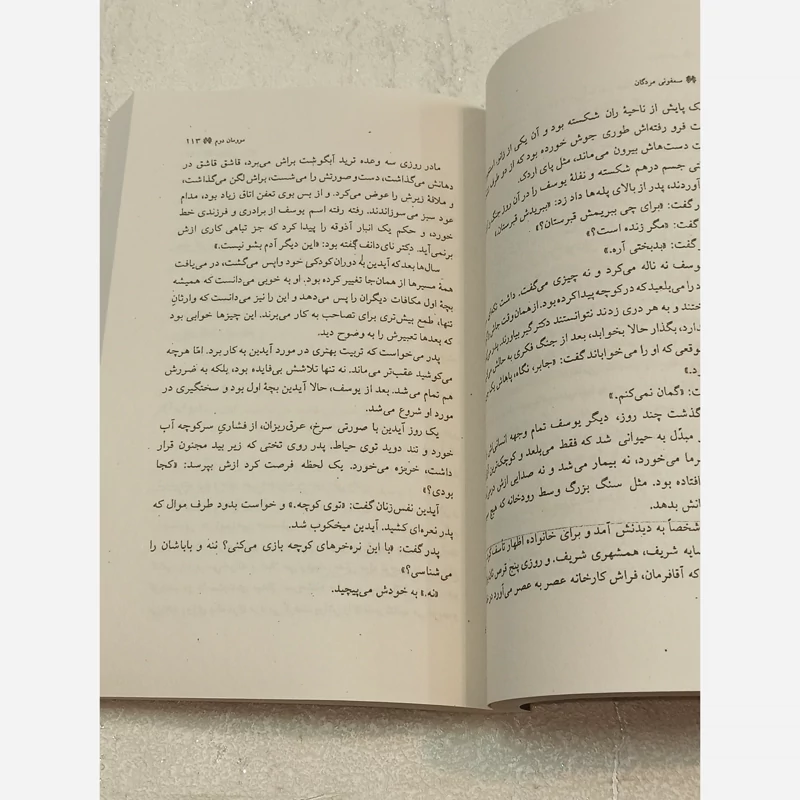 سمفونی مردگان
ک پایش از ناحیهٔ ران شکسته بود و آن یکی از
ت فرو رفته‌اش طوری جوش خورده بود که از دو طرف
ت دست‌هاش بیرون می‌ماند، مثل پای اردک.
تی جسم درهم شکسته و نفلهٔ یوسف را در آن روز جنگ
آوردند، پدر از بالای پله‌ها داد زد: «ببریدش قبرستان»
ر گفت: «برای چی ببریمش قبرستان؟»
گفت: «مگر زنده است؟»
گفت: «بدبختی آره.»
وسف نه ناله می‌کرد و نه چیزی می‌گفت. داشت
د را می‌بلعید که در کوچه پیدا کرده بود. از همان وقت
ختند و به هر دری زدند نتوانستند دکتر گیر بیاورند. پدر
دارد، بگذار حالا بخوابد، بعد از جنگ فکری به حالش
وقعی که او را می‌خواباند گفت: «جابر، نگاه، پاهاش
د.»
ت: «گمان نمی‌کنم.»
گذشت چند روز، دیگر یوسف تمام وجهه انسانی‌اش
مبدّل به حیوانی شد که فقط می‌بلعد و کوچک‌ترین
رما می‌خورد، نه بیمار می‌شد و نه صدایی ازش
افتاده بود. مثل سنگ بزرگ وسط رودخانه که هیچ
انش بدهد.
شخصاً به دیدنش آمد و برای خانواده اظهار تأسف
سایه شریف، همشهری شریف. و روزی پنج قرص
که آقافرمان، فراش کارخانه عصر به عصر می‌آورد
موومان دوم ۱۱۳
مادر روزی سه وعده ترید آبگوشت براش می‌برد، قاشق قاشق در
دهانش می‌گذاشت، دست و صورتش را می‌شست، براش لگن می‌گذاشت،
و ملافهٔ زیرش را عوض می‌کرد. و از بس بوی تعفن اتاق زیاد بود، مدام
عود سبز می‌سوزاندند. رفته رفته اسم یوسف از برادری و فرزندی خط
خورد، و حکم یک انبار آذوقه را پیدا کرد که جز تباهی کاری ازش
برنمی‌آید. دکتر نای‌دانف گفته بود: «این دیگر آدم بشو نیست.»
سال‌ها بعد که آیدین به دوران کودکی خود واپس می‌گشت، در می‌یافت
همهٔ مسیرها از همان‌جا تغییر کرده بود. او به خوبی می‌دانست که همیشه
بچهٔ اول مکافات دیگران را پس می‌دهد و این را نیز می‌دانست که وارثانِ
تنها، طمع بیش‌تری برای تصاحب به کار می‌برند. این چیزها خوابی بود
که بعدها تعبیرش را به وضوح دید.
پدر می‌خواست که تربیت بهتری در مورد آیدین به کار برد. امّا هرچه
می‌کوشید عقب‌تر می‌ماند. نه تنها تلاشش بی‌فایده بود، بلکه به ضررش
هم تمام می‌شد. بعد از یوسف، حالا آیدین بچهٔ اول بود و سختگیری در
مورد او شروع می‌شد.
یک روز آیدین با صورتی سرخ، عرق‌ریزان، از فشاریِ سرکوچه آب
خورد و تند دوید توی حیاط. پدر روی تختی که زیر بید مجنون قرار
داشت، خربزه می‌خورد. یک لحظه فرصت کرد ازش بپرسد: «کجا
بودی؟»
آیدین نفس‌زنان گفت: «توی کوچه.» و خواست بدود طرف موال که
پدر نعره‌ای کشید. آیدین میخکوب شد.
پدر گفت: «با این نره‌خرهای کوچه بازی می‌کنی؟ ننه و باباشان را
می‌شناسی؟»
«نه.» به خودش می‌پیچید.